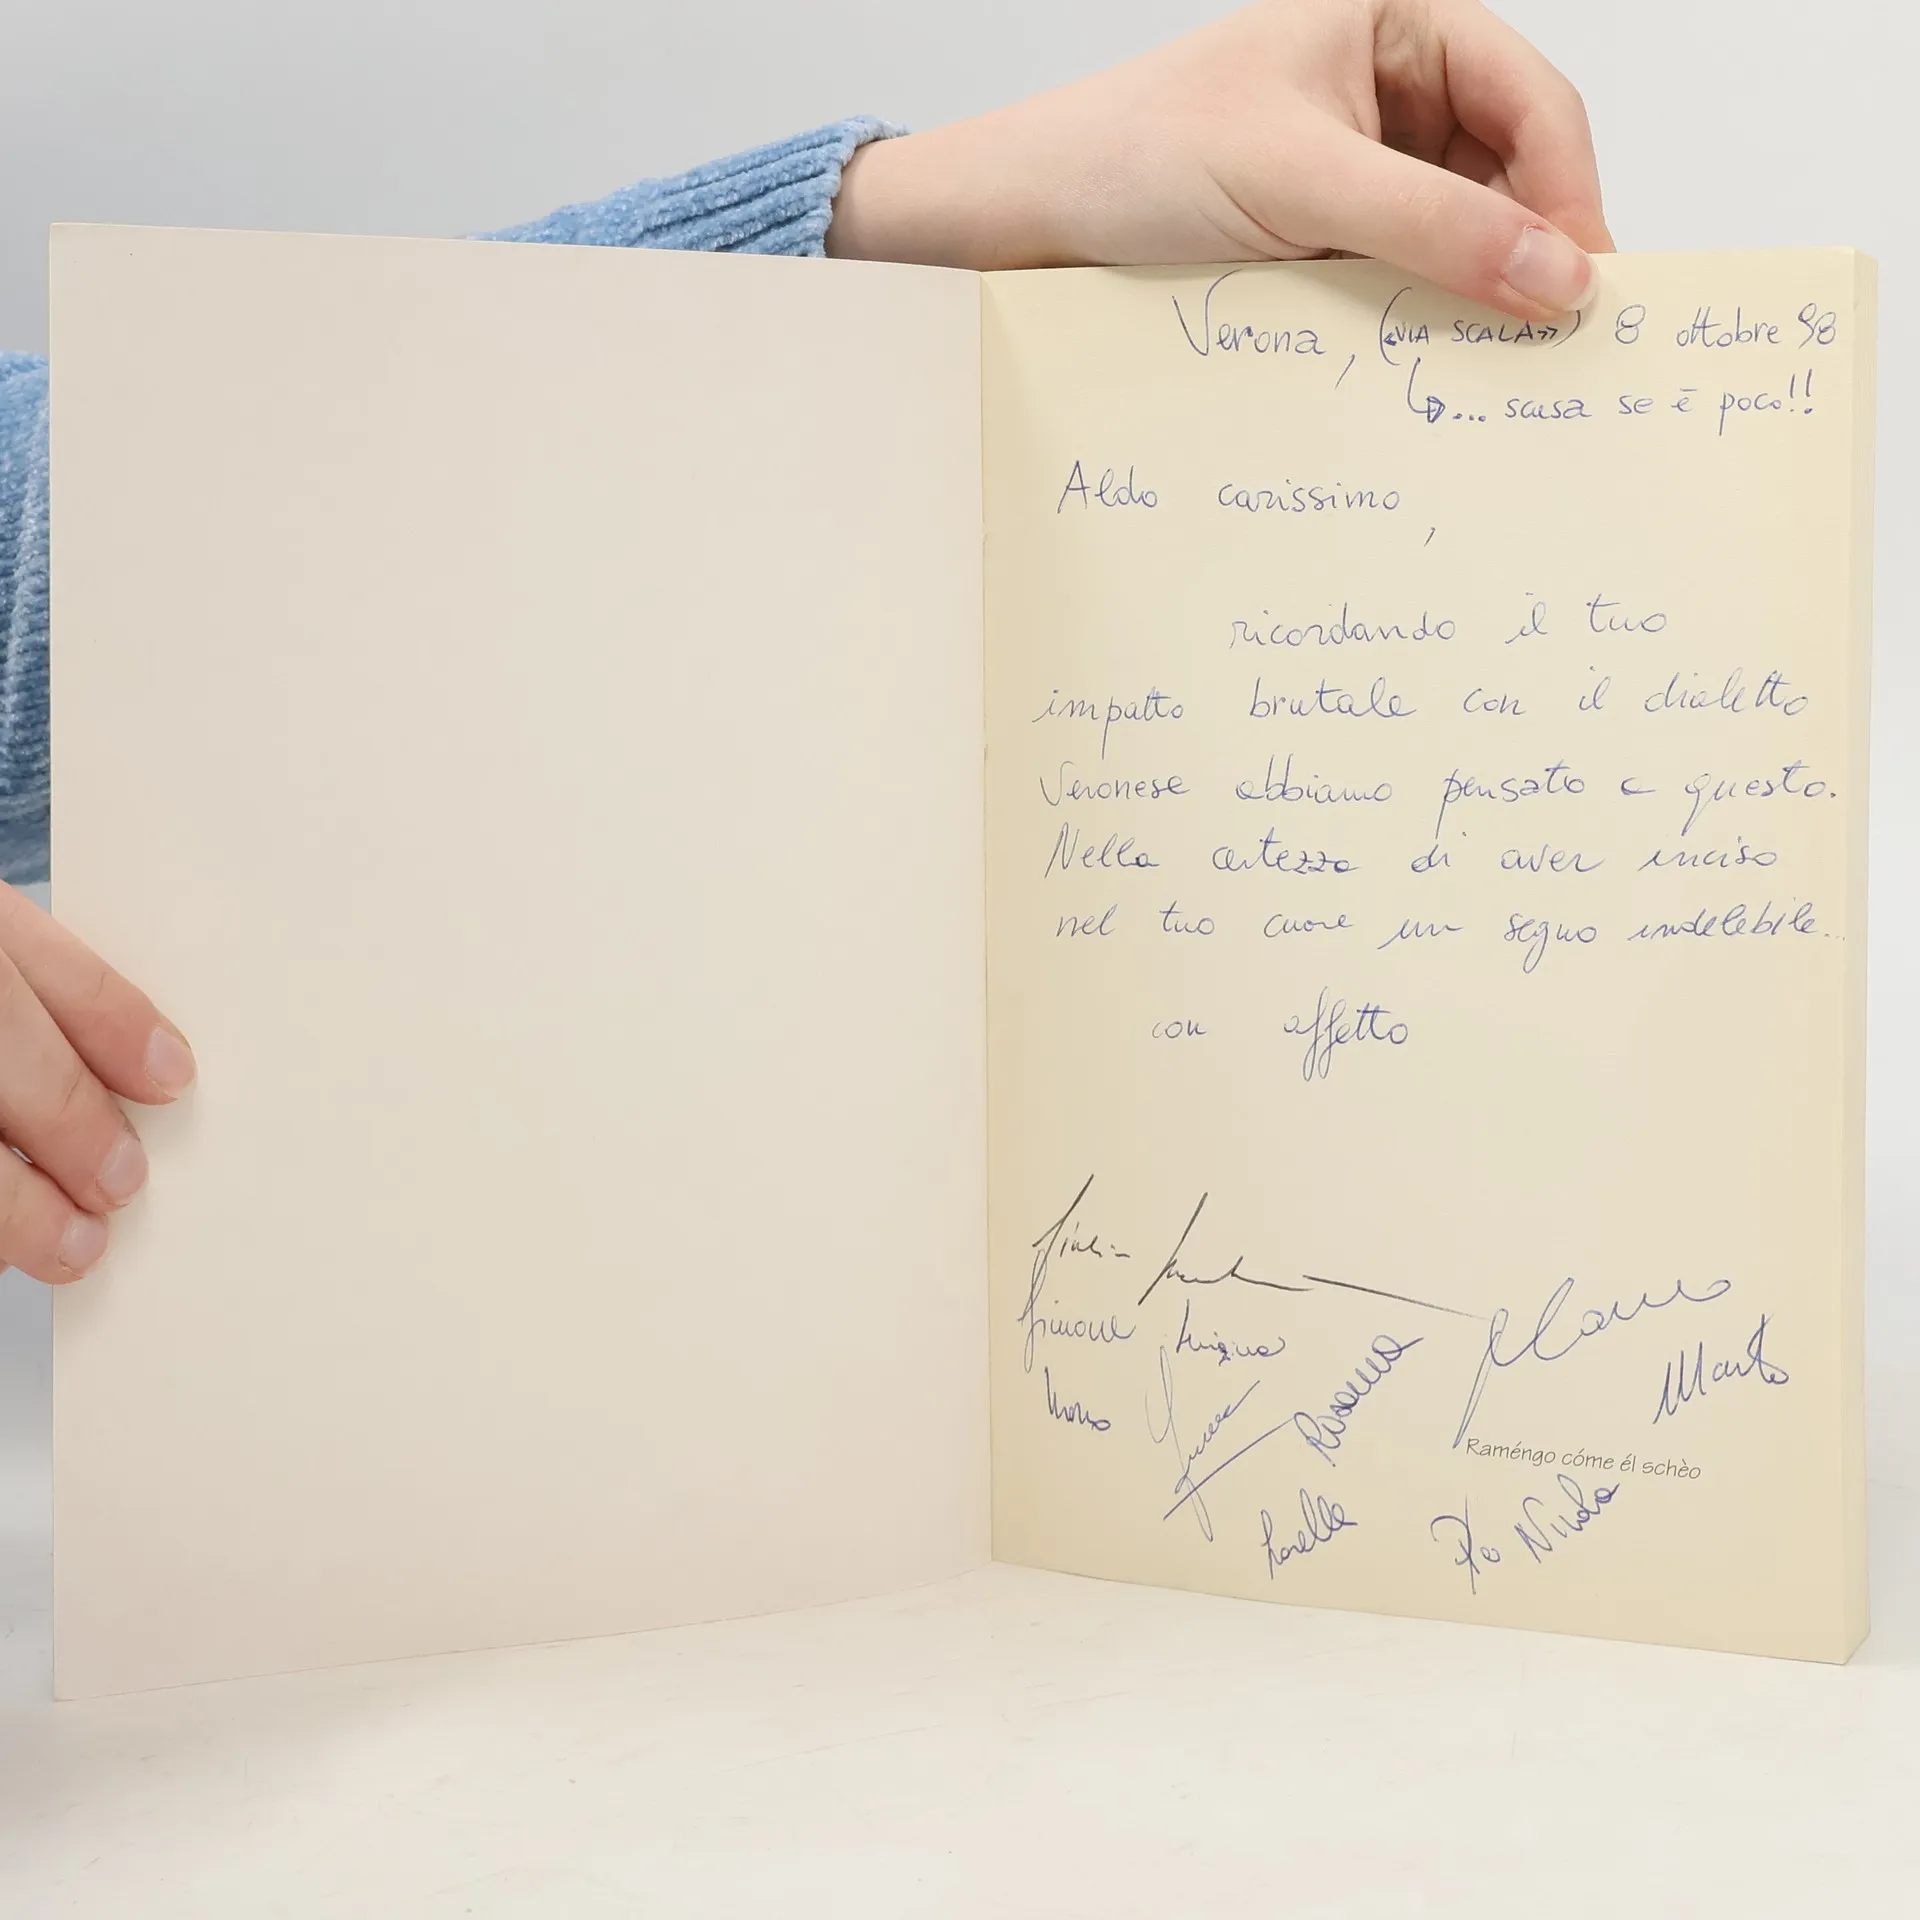 Verona, («VIA SCALA») 8 ottobre 98
... scusa se è poco!!
Aldo carissimo,
ricordando il tuo
impatto brutale con il dialetto
Veronese abbiamo pensato a questo.
Nella certezza di aver inciso
nel tuo cuore un segno indelebile...
con affetto
Simone Luigina
Rosanna
Raméngo cóme él schèo
Lorella
Nicola